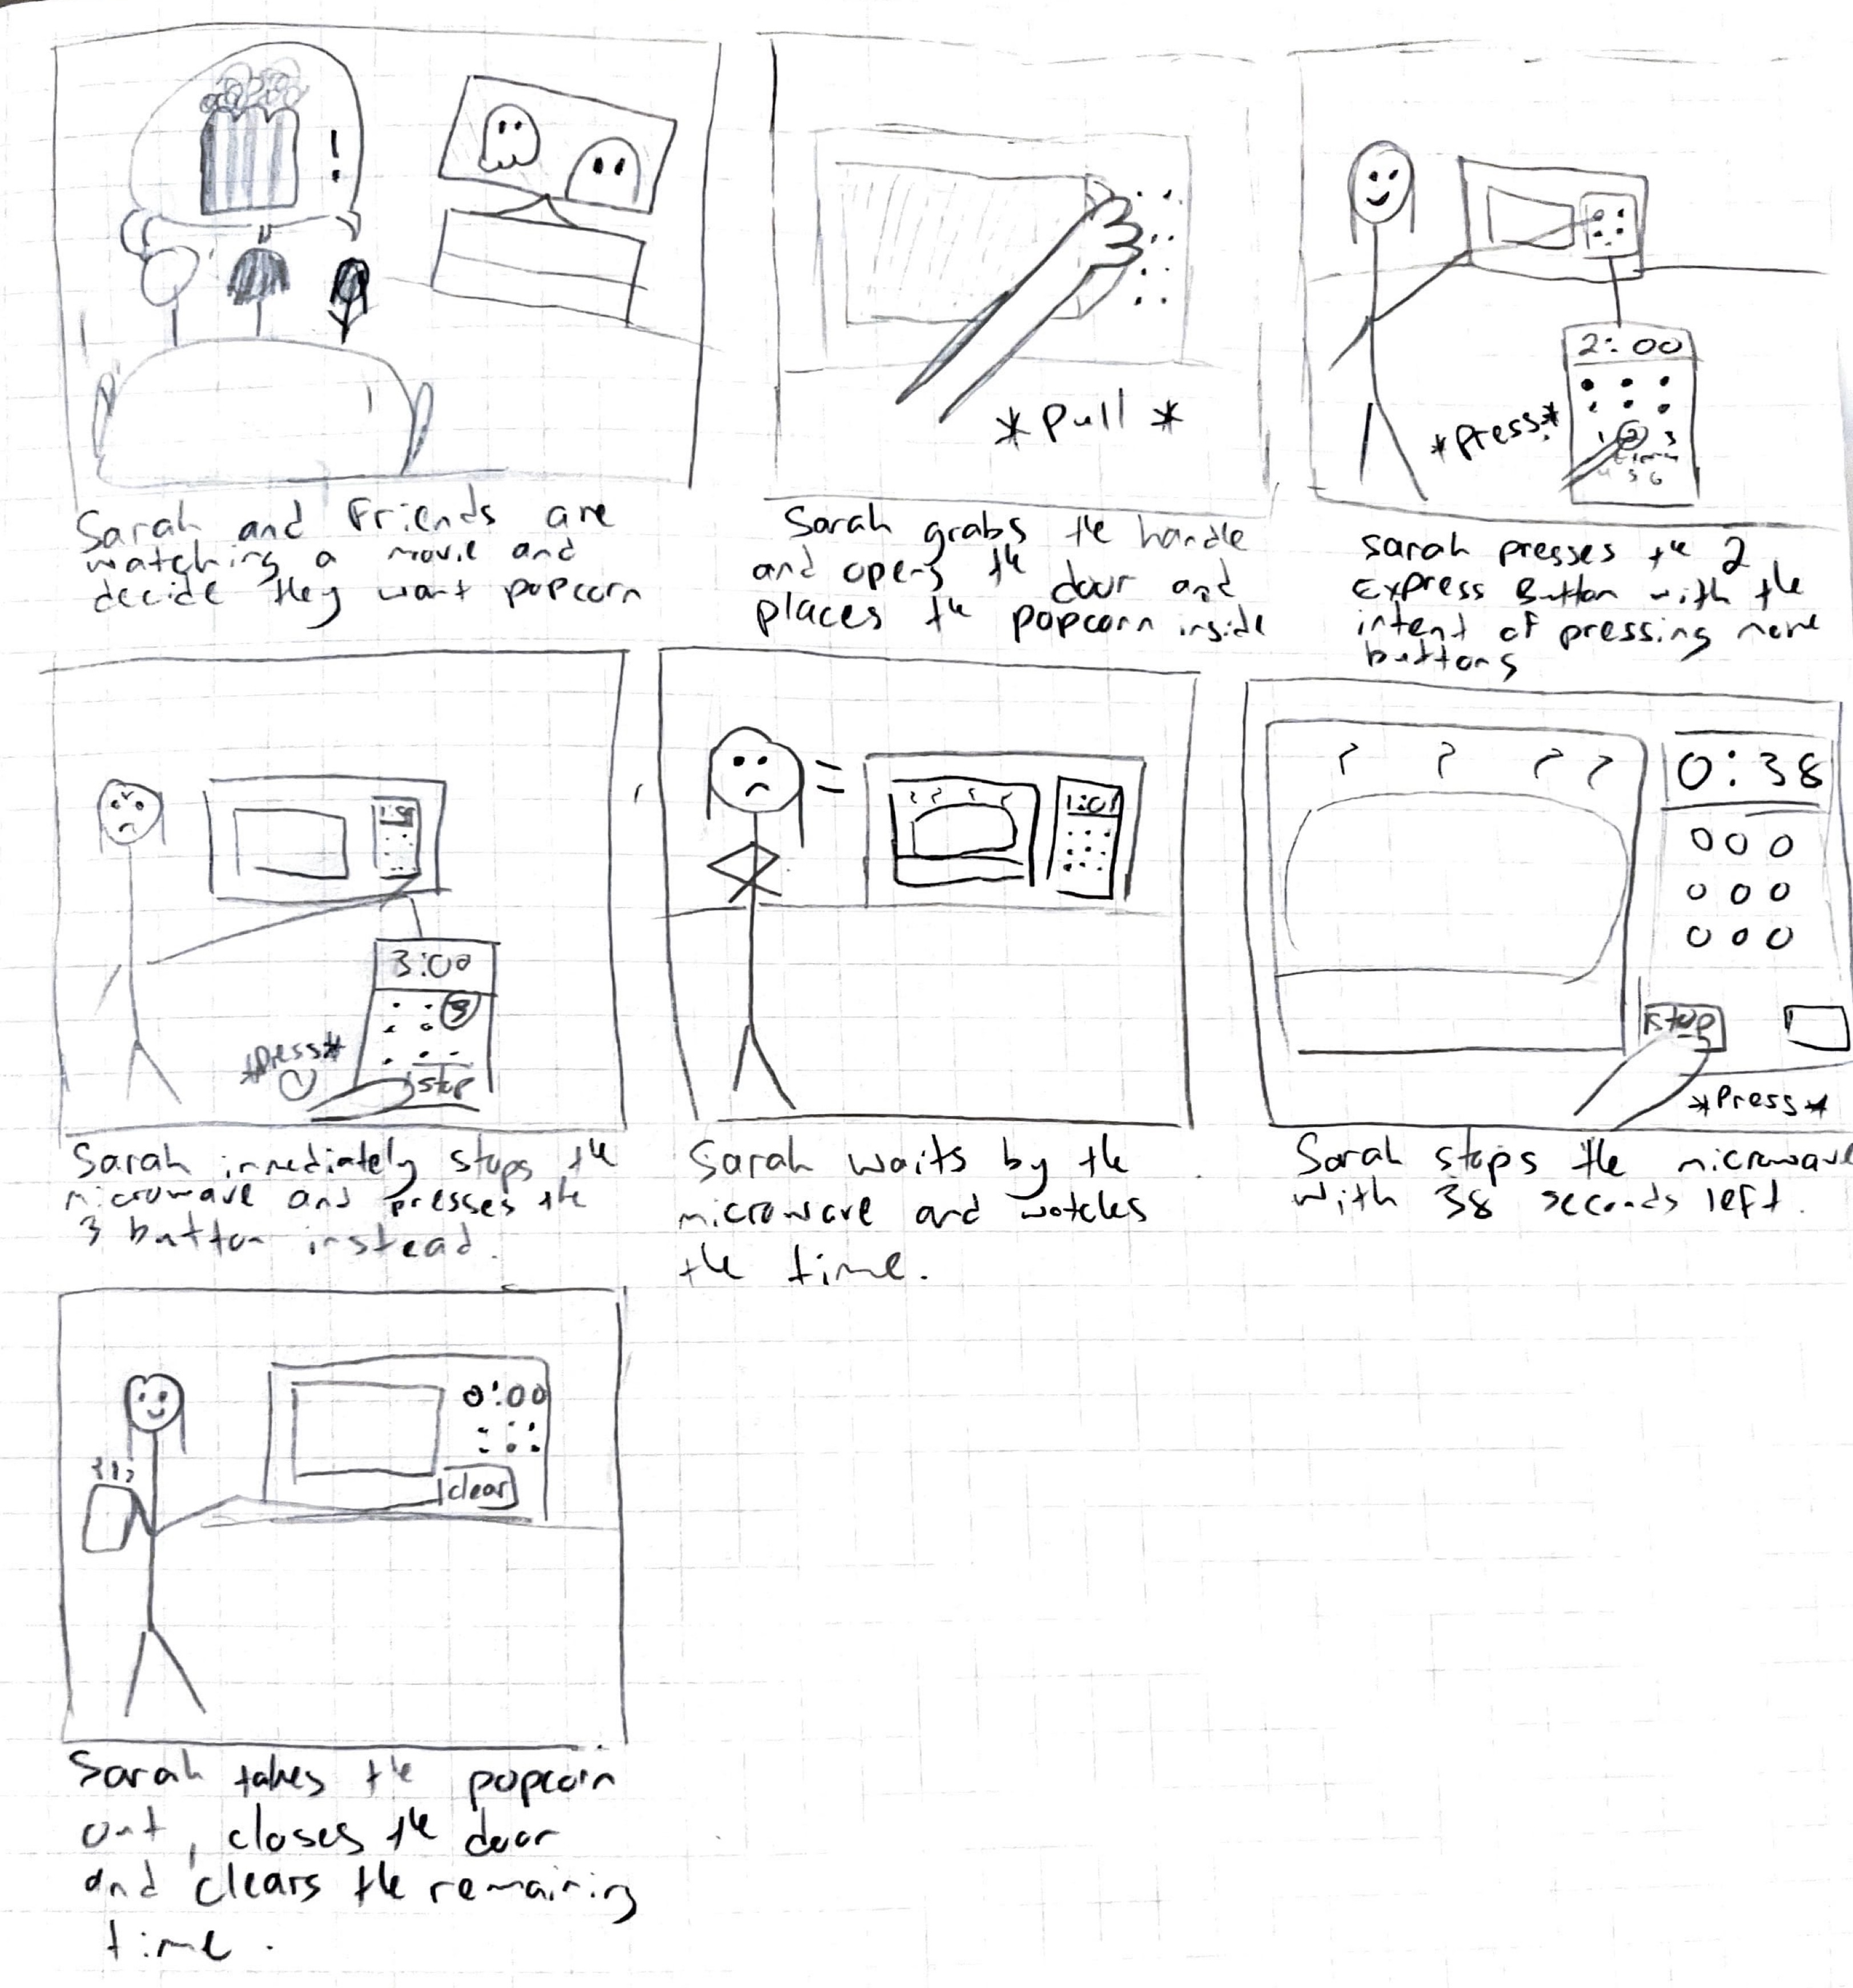 !
*Pull*
2:00
*press*
1 2 3
4 5 6
Sarah and Friends are
watching a movie and
decide they want popcorn
Sarah grabs the handle
and opens the door and
places the popcorn inside
Sarah presses the 2
Express Button with the
intent of pressing more
buttons
3:00
3
*press*
stop
1:01
0:38
stop
*Press*
Sarah immediately stops the
microwave and presses the
3 button instead.
Sarah waits by the
microwave and watches
the time.
Sarah stops the microwave
with 38 seconds left.
0:00
clear
Sarah takes the popcorn
out, closes the door
and clears the remaining
time.